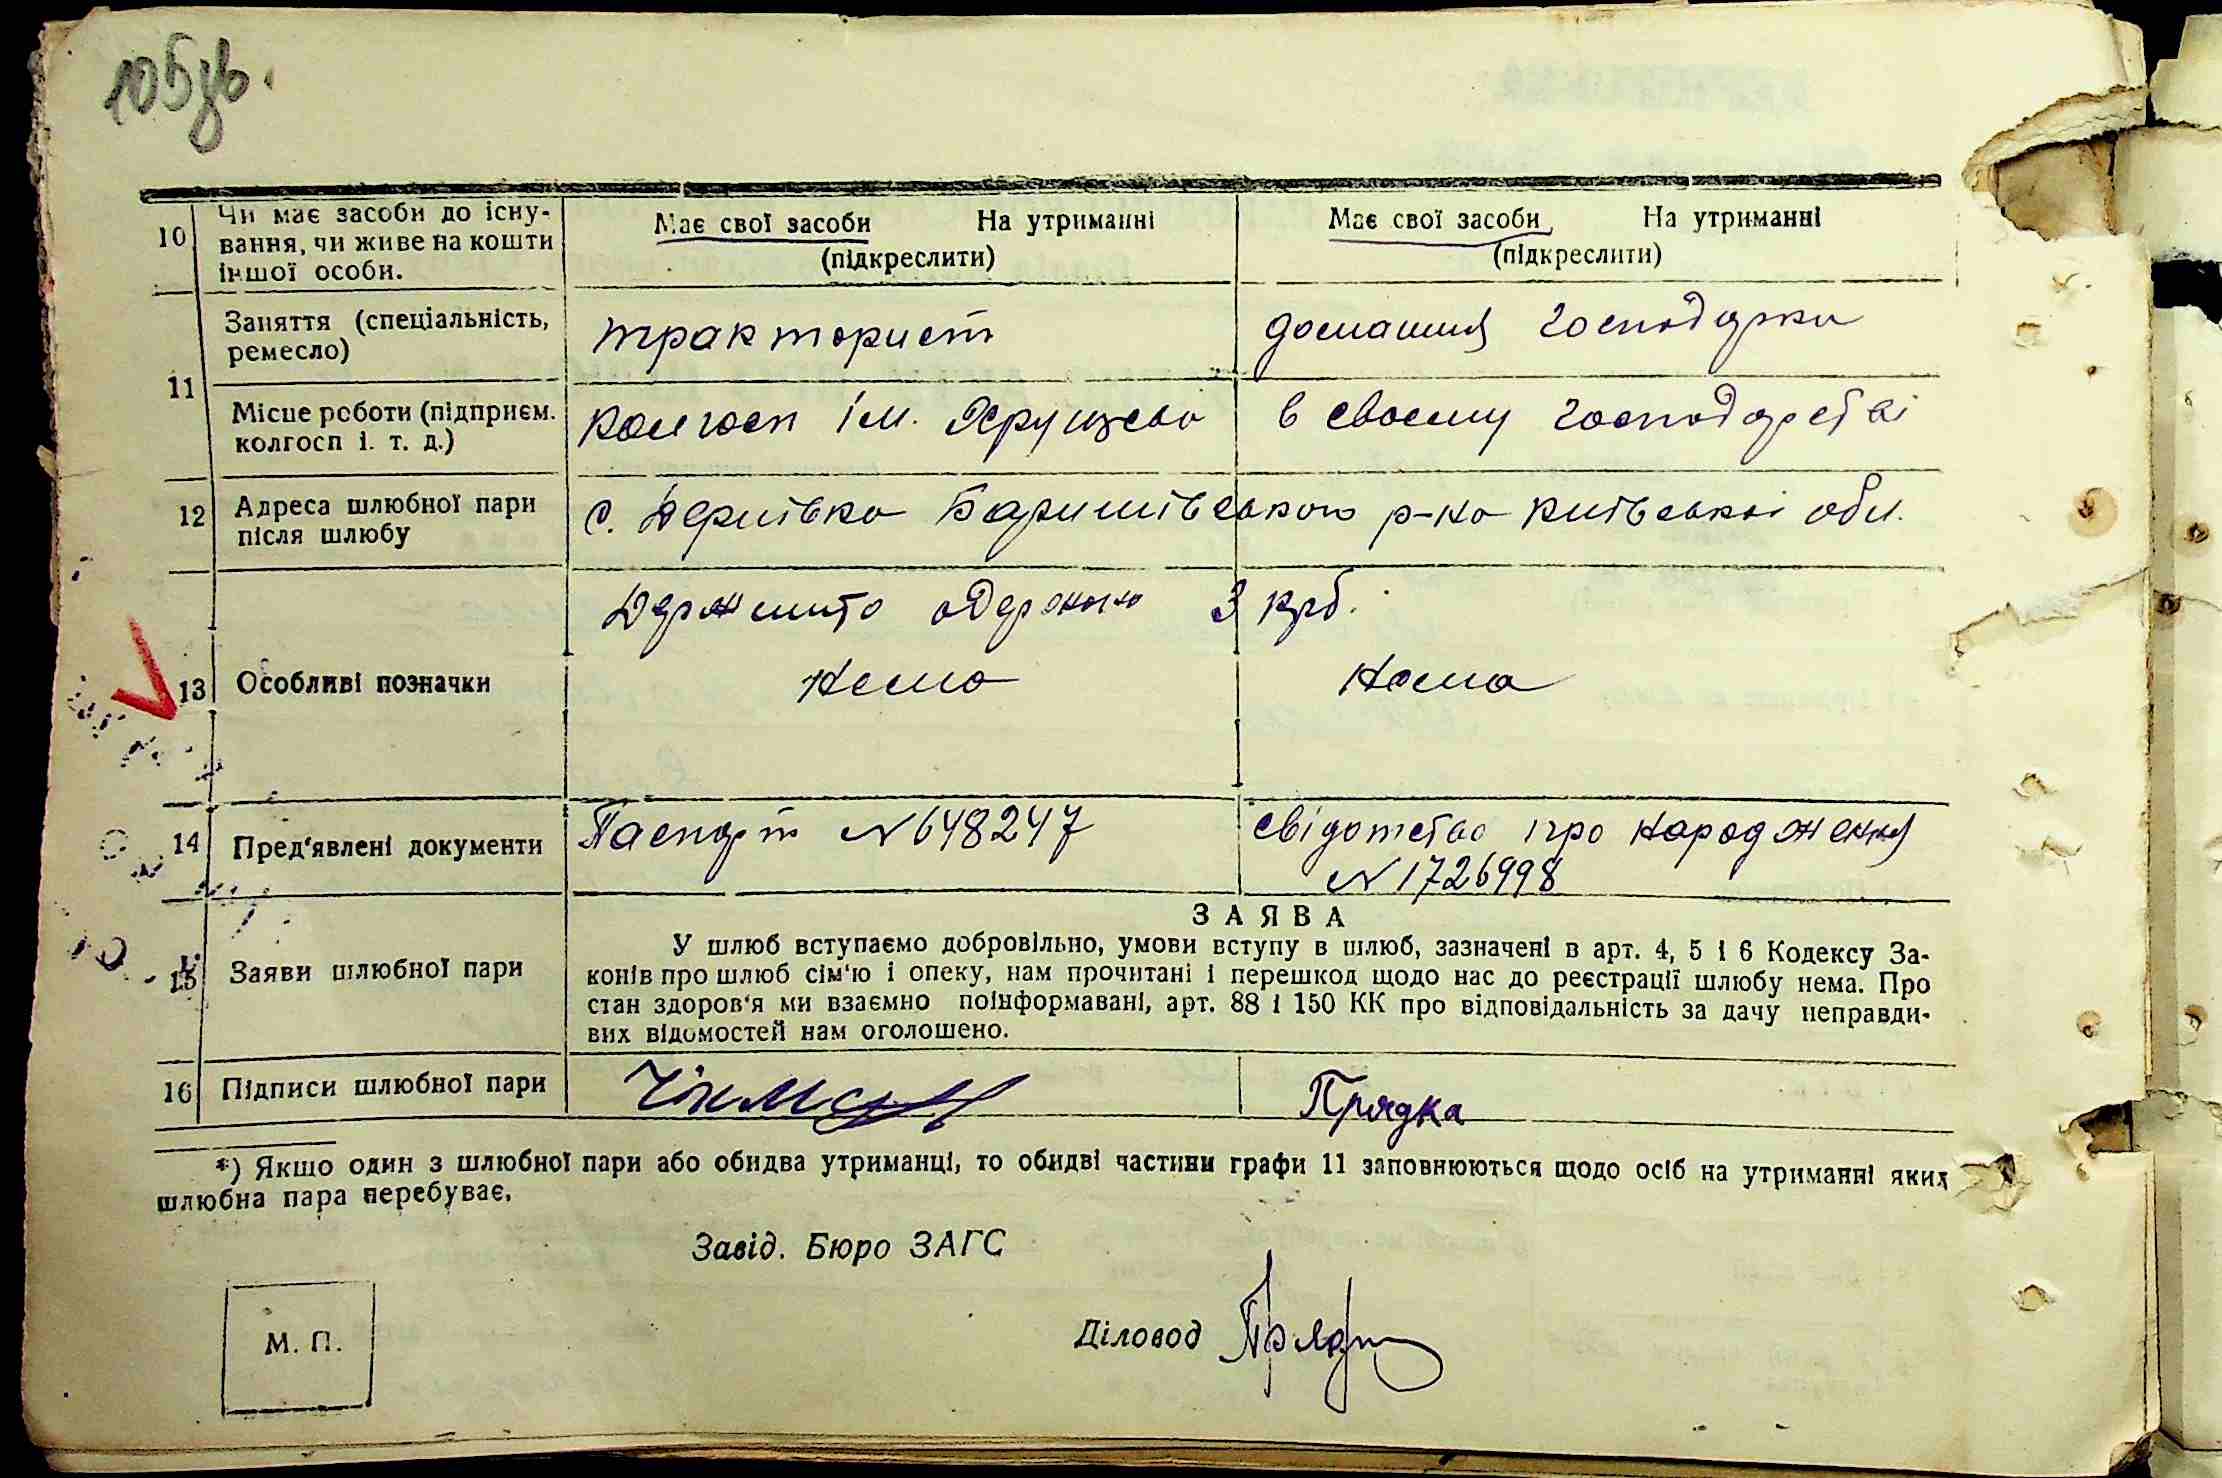 106зв.
10 Чи має засоби до існу-
вання, чи живе на кошти
іншої особи.
Має свої засоби На утриманні
(підкреслити)
Має свої засоби На утриманні
(підкреслити)
11
Заняття (спеціальність,
ремесло)
тракторист
домашня господарка
Місце роботи (підприєм.
колгосп і. т. д.)
колгосп ім. Хрущева
в своєму господарстві
12 Адреса шлюбної пари
після шлюбу
с. Дернівка Баришівського р-на Київської обл.
13 Особливі позначки
Держмито одержано 3 крб.
Нема
Нема
14 Пред'явлені документи
Паспорт №648247
свідотство про народження
№1726998
15 Заяви шлюбної пари
ЗАЯВА
У шлюб вступаємо добровільно, умови вступу в шлюб, зазначені в арт. 4, 5 і 6 Кодексу За-
конів про шлюб сім'ю і опеку, нам прочитані і перешкод щодо нас до реєстрації шлюбу нема. Про
стан здоров'я ми взаємно поінформавані, арт. 88 і 150 КК про відповідальність за дачу неправди-
вих відомостей нам оголошено.
16 Підписи шлюбної пари
Прядка
*) Якщо один з шлюбної пари або обидва утриманці, то обидві частини графи 11 заповнюються щодо осіб на утриманні яких
шлюбна пара перебуває.
Завід. Бюро ЗАГС
М. П.
Діловод